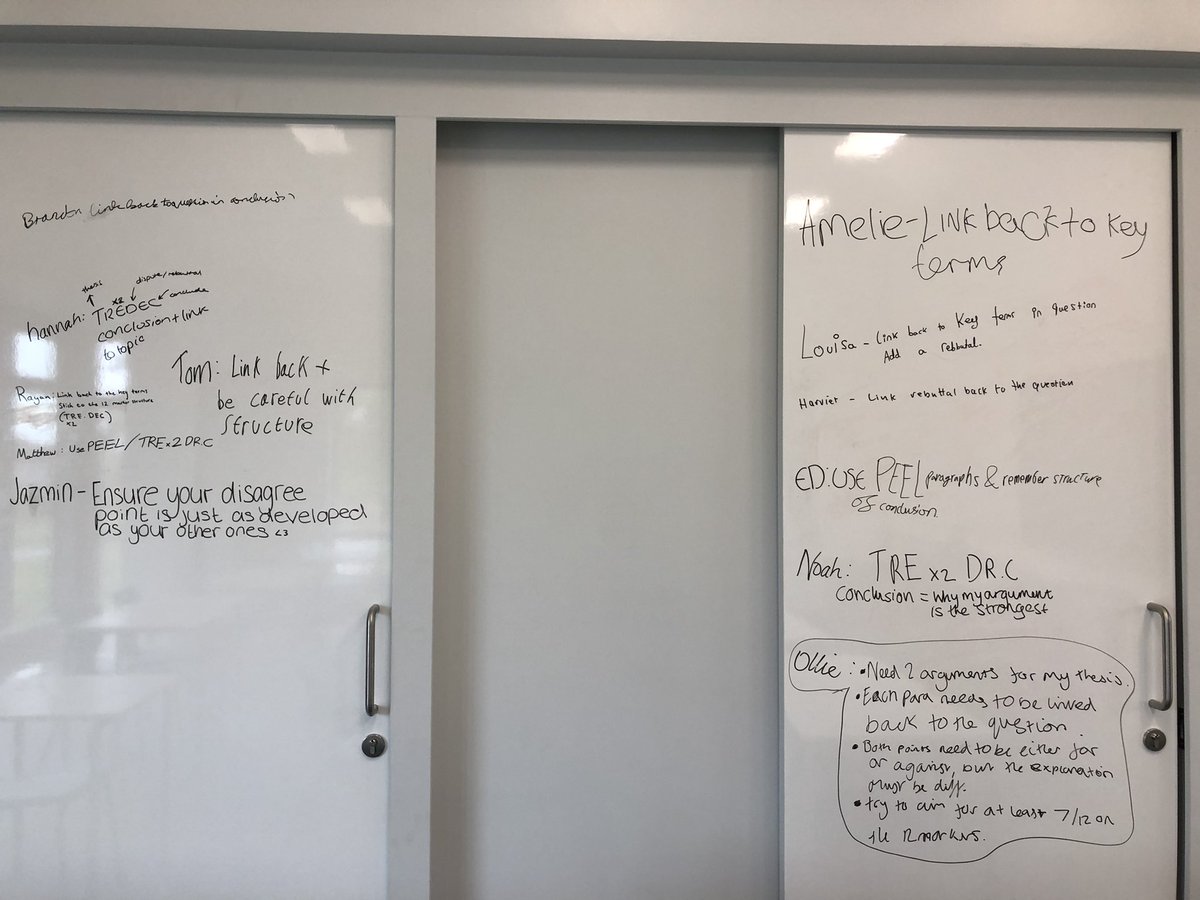 Brandon link back to question in conclusion
thesis
dispute/rebuttal
x2
hannah: TREDEC conclude
conclusion + link
to topic
Tom: Link back +
be careful with
structure
Rayan: Link back to the key terms
Stick to the 12 marker structure
(TRE.DEC)
x2
Matthew: Use PEEL/TREx2 DR.C
Jazmin - Ensure your disagree
point is just as developed
as your other ones <3
Amelie - Link back to key
terms
Louisa - Link back to key terms in question
Add a rebbutal.
Harriet - Link rebuttal back to the question
ED: USE PEEL paragraphs & remember structure
of conclusion
Noah: TRE x2 DR.C
Conclusion = why my argument
is the strongest
Ollie: • Need 2 arguments for my thesis.
• Each para needs to be linked
back to the question.
• Both points need to be either for
or against, but the explanation
must be diff.
• try to aim for at least 7/12 on
the 12 markers.